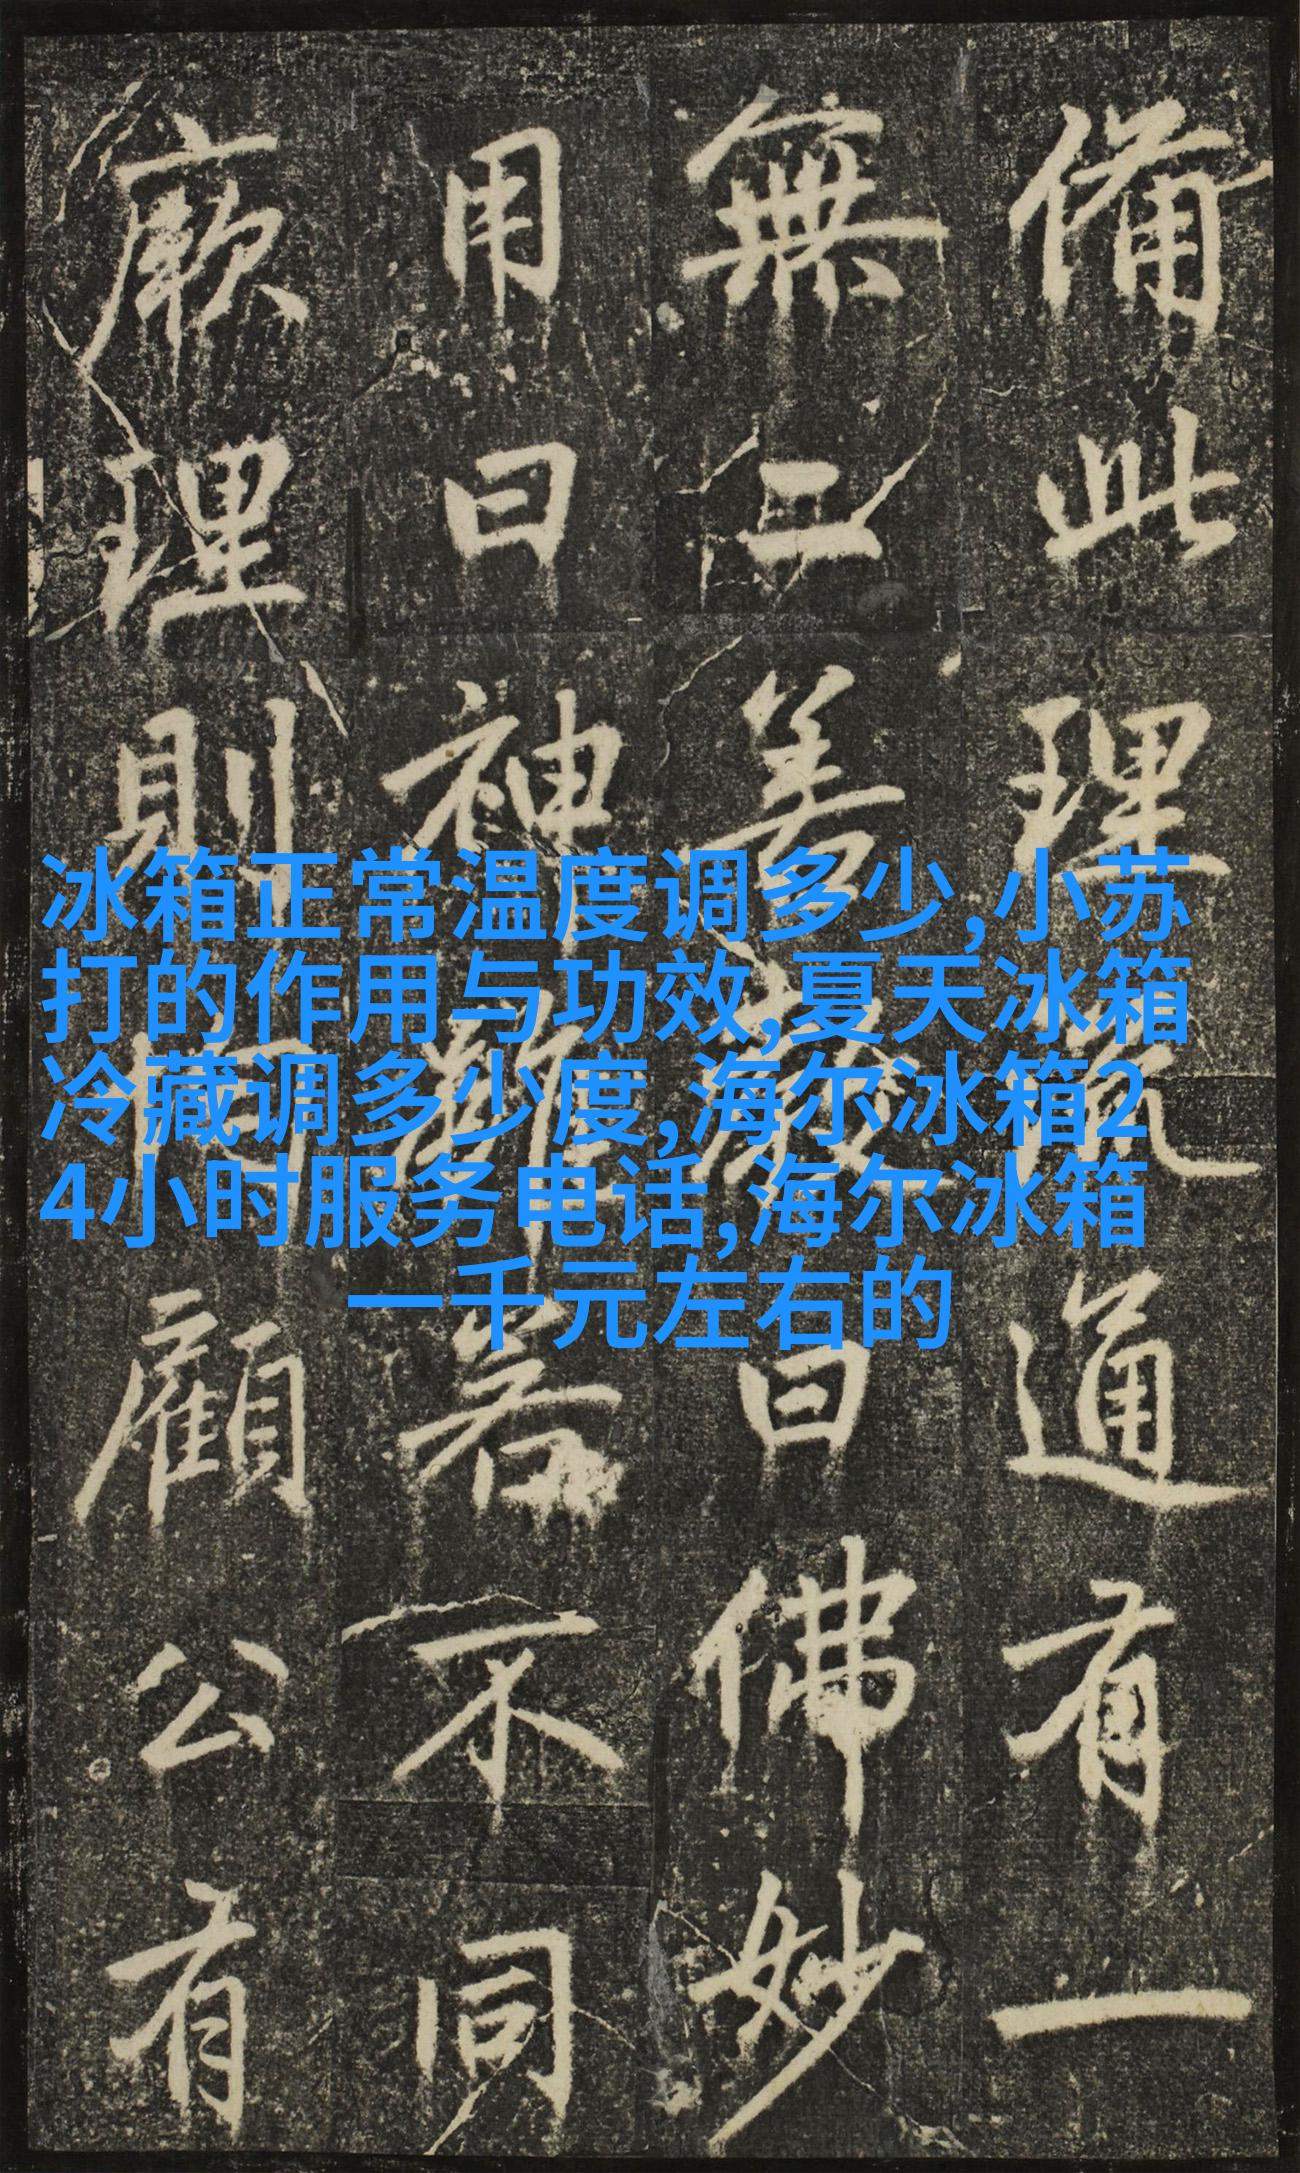 冰箱正常温度调多少,小苏
打的作用与功效,夏天冰箱
冷藏调多少度,海尔冰箱2
4小时服务电话,海尔冰箱
一千元左右的
備此理通有一
無善曰佛妙
用曰神若不同
厥理則顧公有